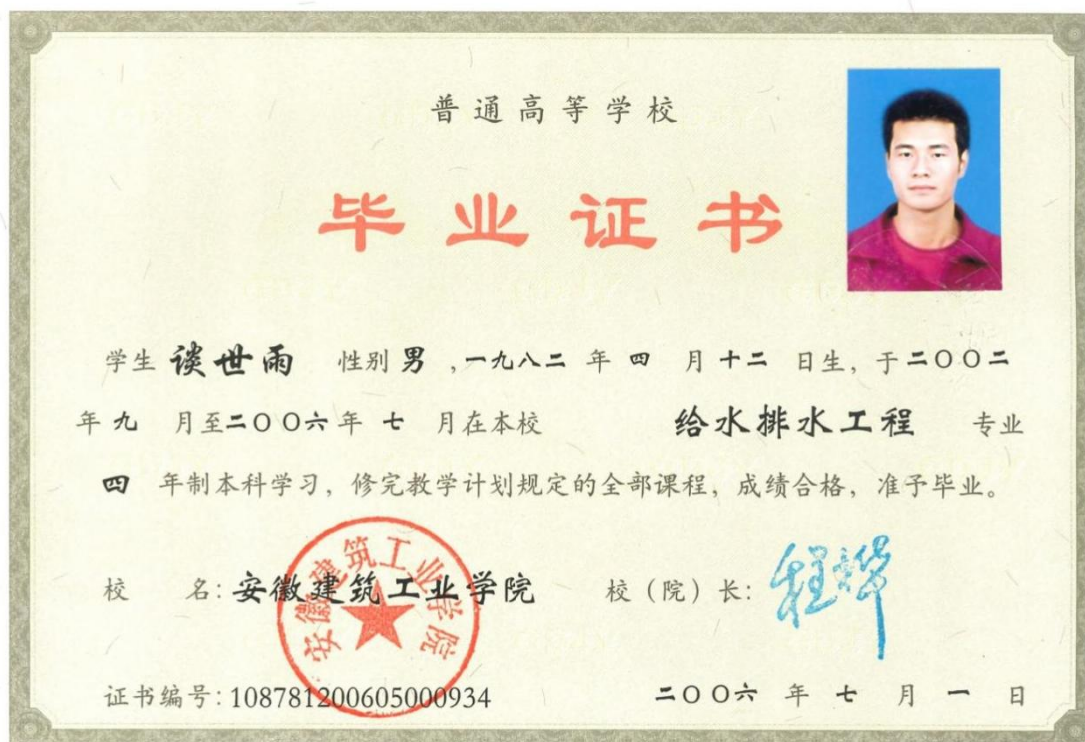 普通高等学校
毕业证书
学生 谈世雨 性别 男 ,一九八二 年 四 月 十二 日生, 于 二〇〇二
年 九 月至 二〇〇六 年 七 月在本校 给水排水工程 专业
四 年制本科学习, 修完教学计划规定的全部课程, 成绩合格, 准予毕业。
校 名: 安徽建筑工业学院 校（院）长:
安徽建筑工业学院
证书编号: 108781200605000934 二〇〇六 年 七 月 一 日